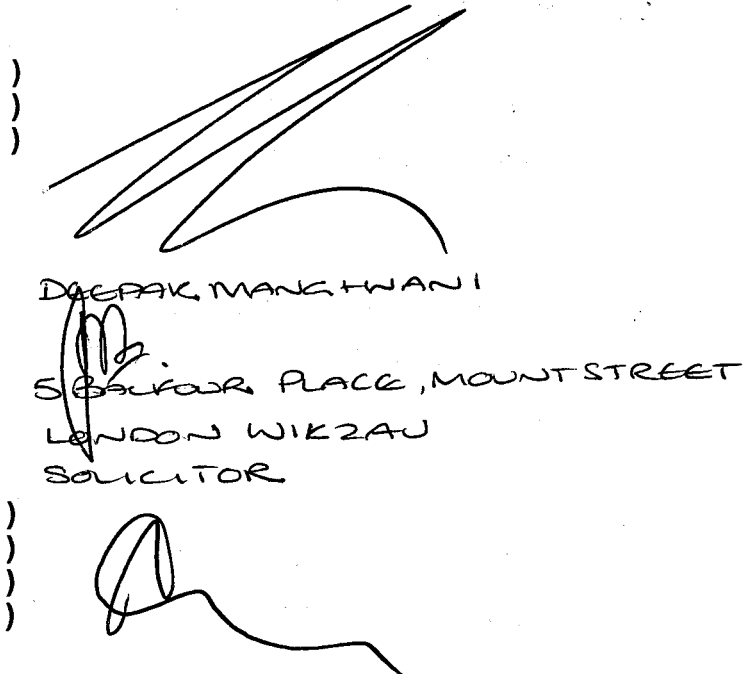 )
)
)
DEEPAK MANGHWANI
5 BALFOUR PLACE, MOUNT STREET
LONDON W1K 2AU
SOLICITOR
)
)
)
)